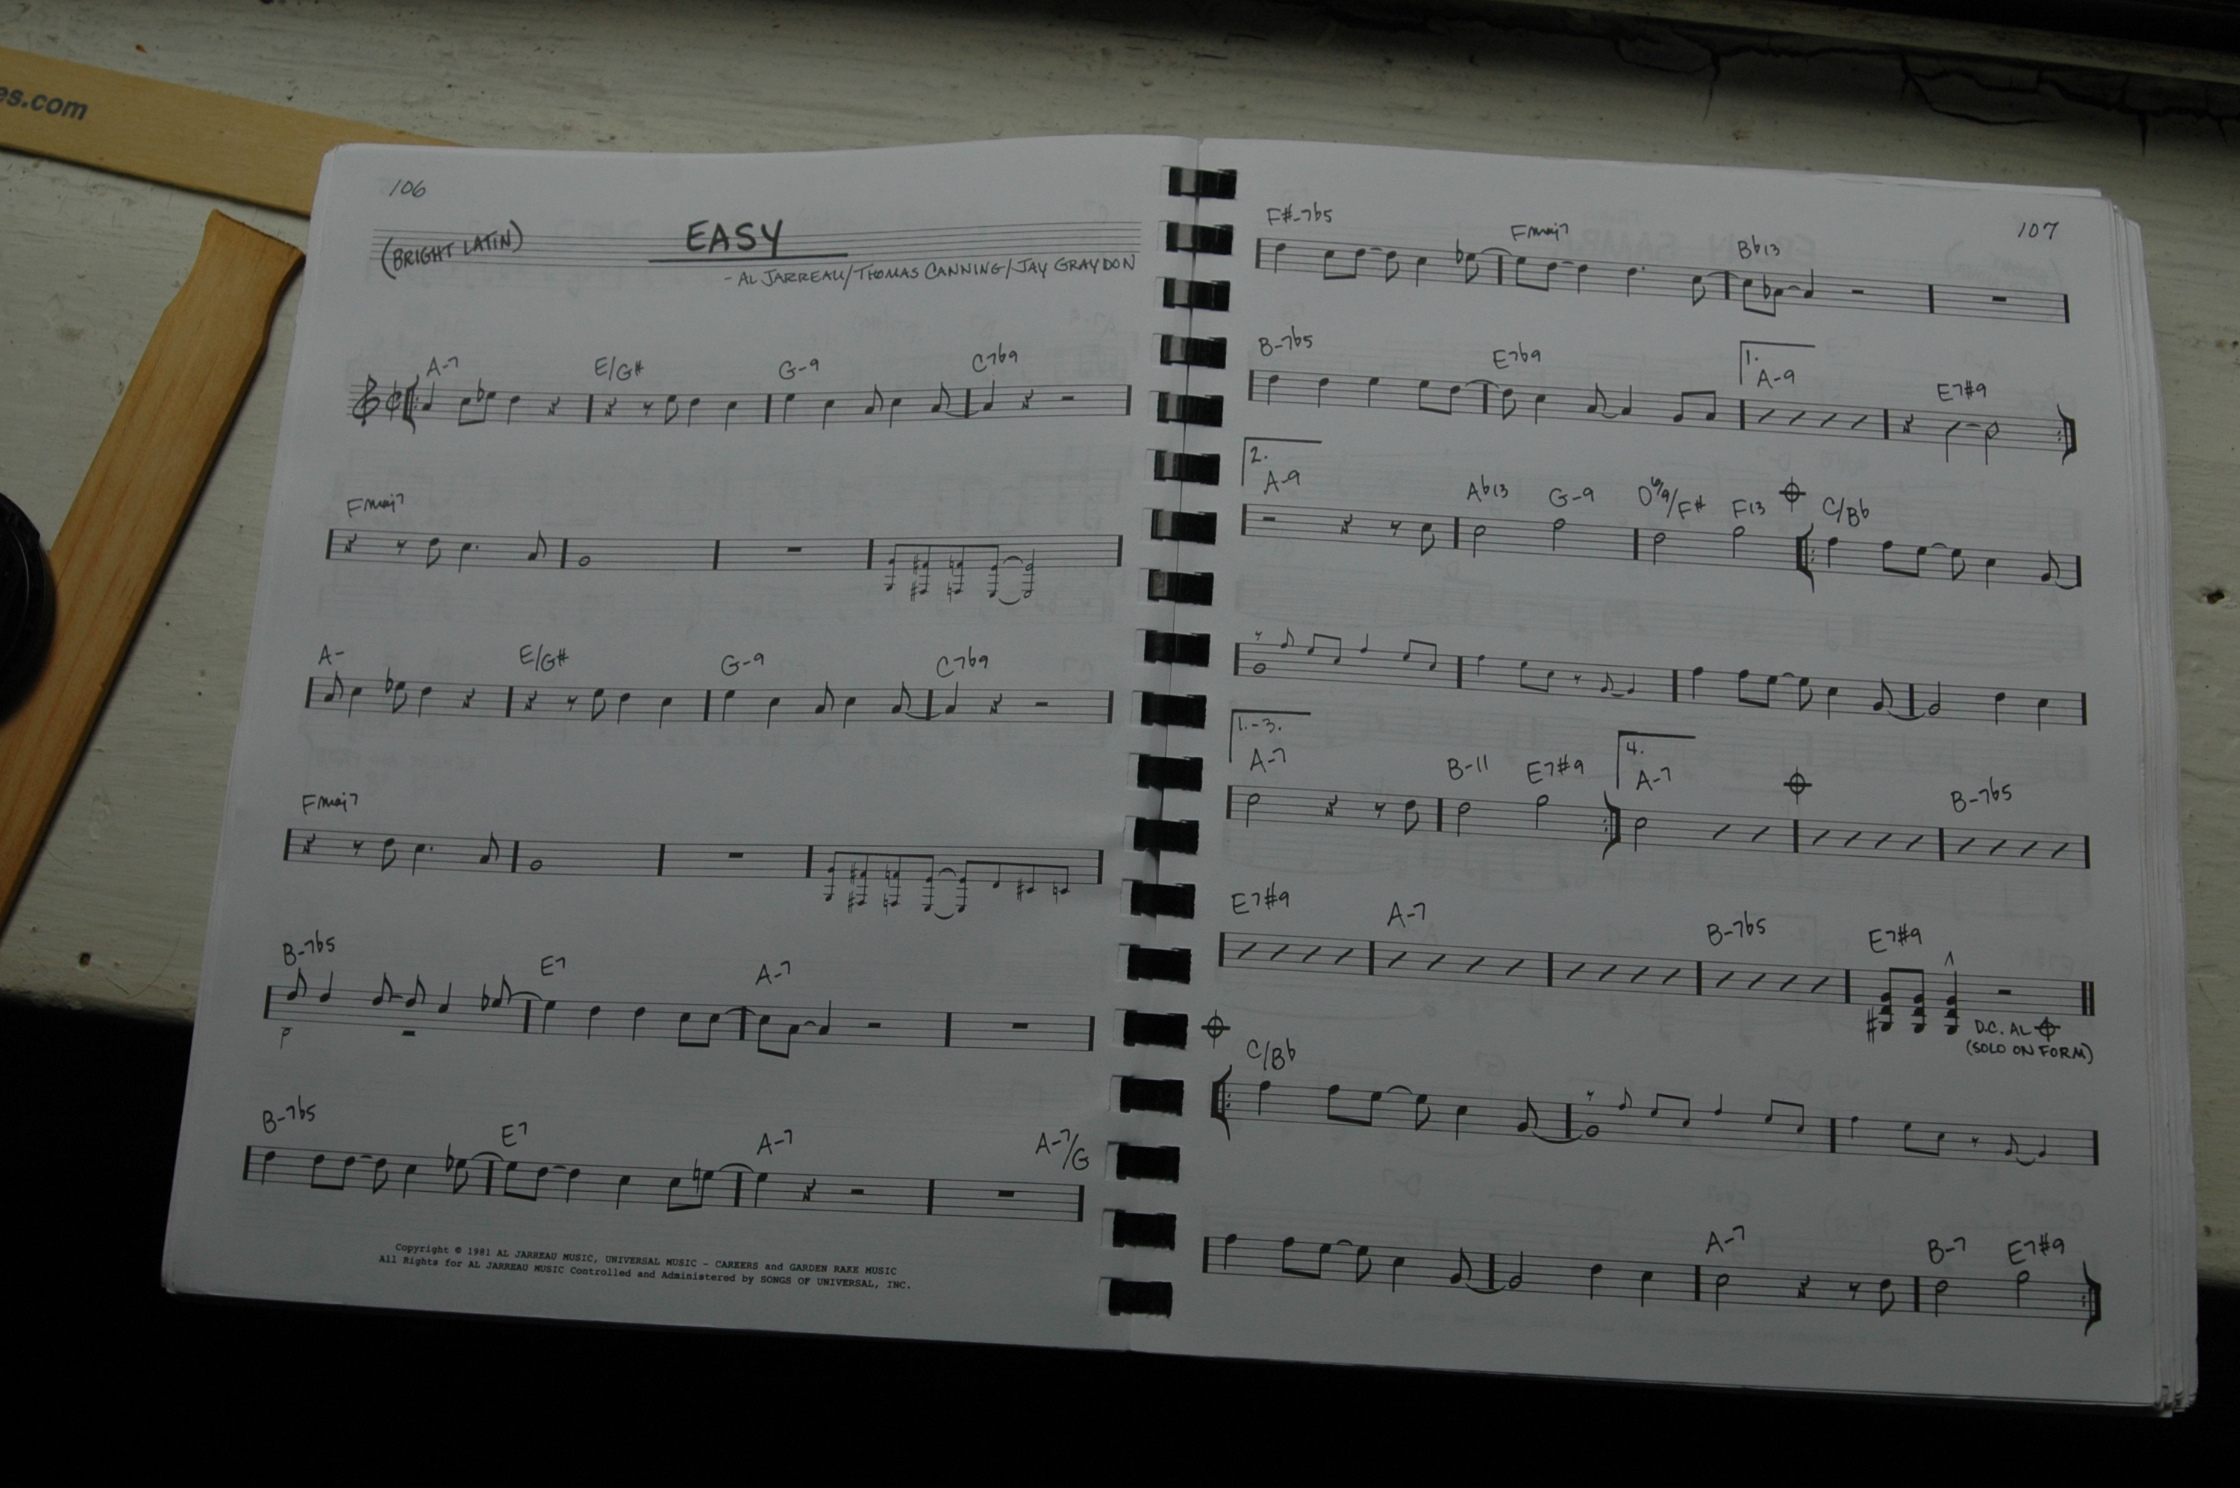 es.com
106
(BRIGHT LATIN)
EASY
- AL JARREAU/THOMAS CANNING/JAY GRAYDON
A-7 E/G# G-9 C7b9
Fmaj7
A- E/G# G-9 C7b9
Fmaj7
B-7b5 E7 A-7
B-7b5 E7 A-7 A-7/G
Copyright © 1981 AL JARREAU MUSIC, UNIVERSAL MUSIC - CAREERS and GARDEN RAKE MUSIC
All Rights for AL JARREAU MUSIC Controlled and Administered by SONGS OF UNIVERSAL, INC.
107
F#-7b5 Fmaj7 Bb13
B-7b5 E7b9 1. A-9 E7#9
2. A-9 Ab13 G-9 D6/9/F# F13 C/Bb
1.-3. A-7 B-11 E7#9 4. A-7 B-7b5
E7#9 A-7 B-7b5 E7#9
D.C. AL
(SOLO ON FORM)
C/Bb
A-7 B-7 E7#9